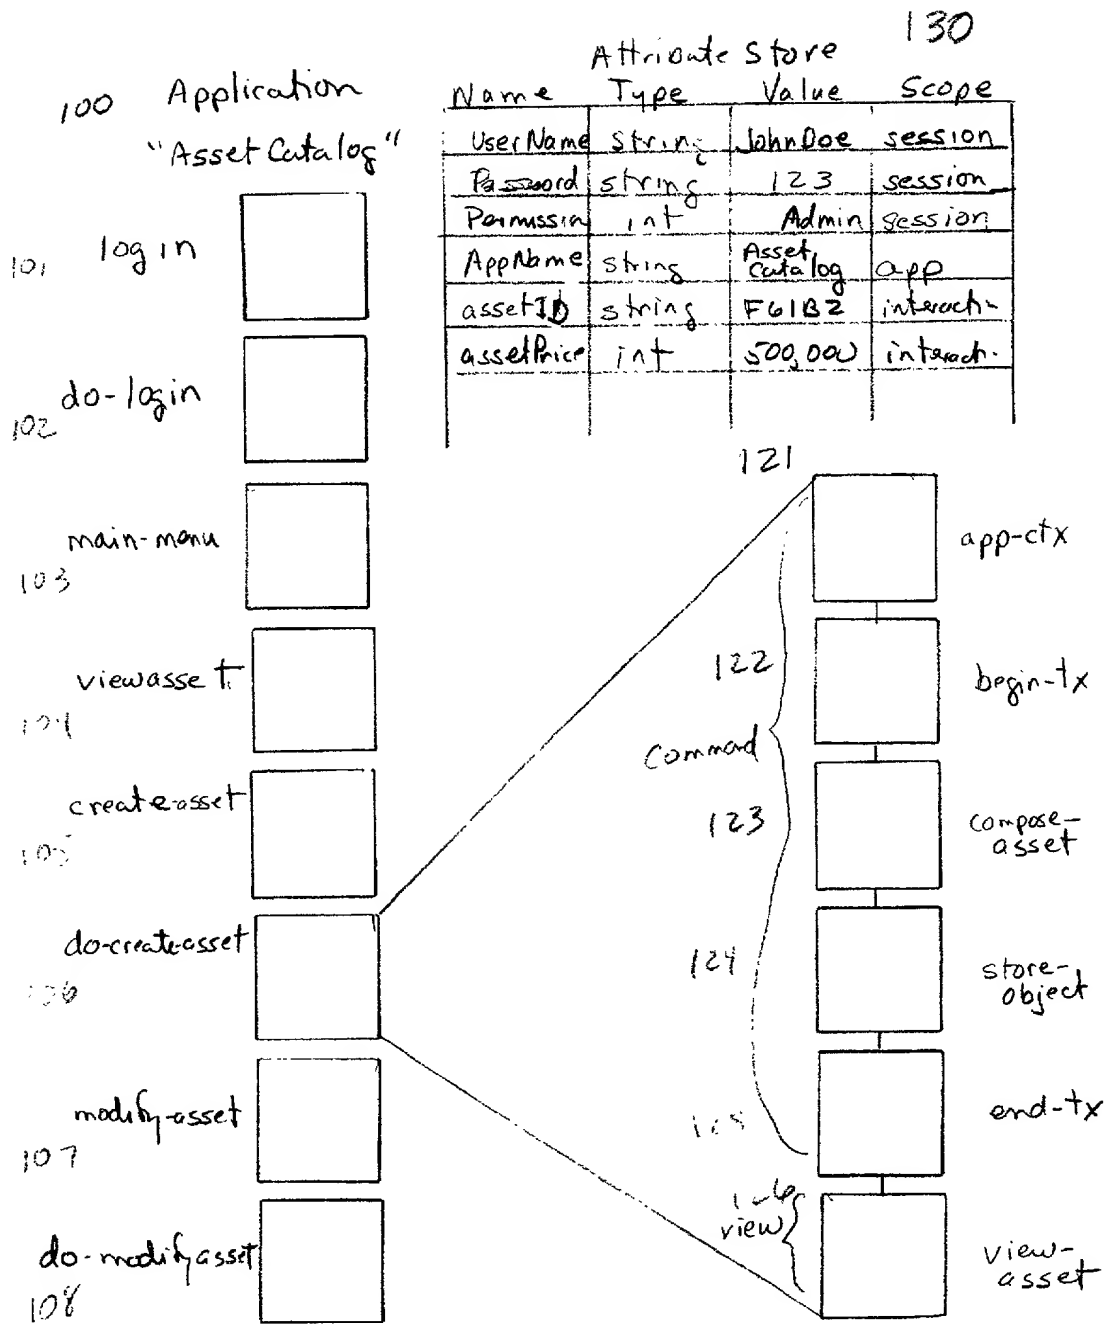 130
Attribute Store
100 Application
"Asset Catalog"
Name Type Value Scope
UserName string JohnDoe session
Password string 123 session
Permission int Admin session
AppName string Asset Catalog app
assetID string F61B2 interacti-
assetPrice int 500,000 interact.
101 login
102 do-login
main-menu
103
viewasset
104
create-asset
105
do-create-asset
106
modify-asset
107
do-modifyasset
108
121
app-ctx
122
begin-tx
Command
123
compose-
asset
124
store-
object
125
end-tx
view
view-
asset